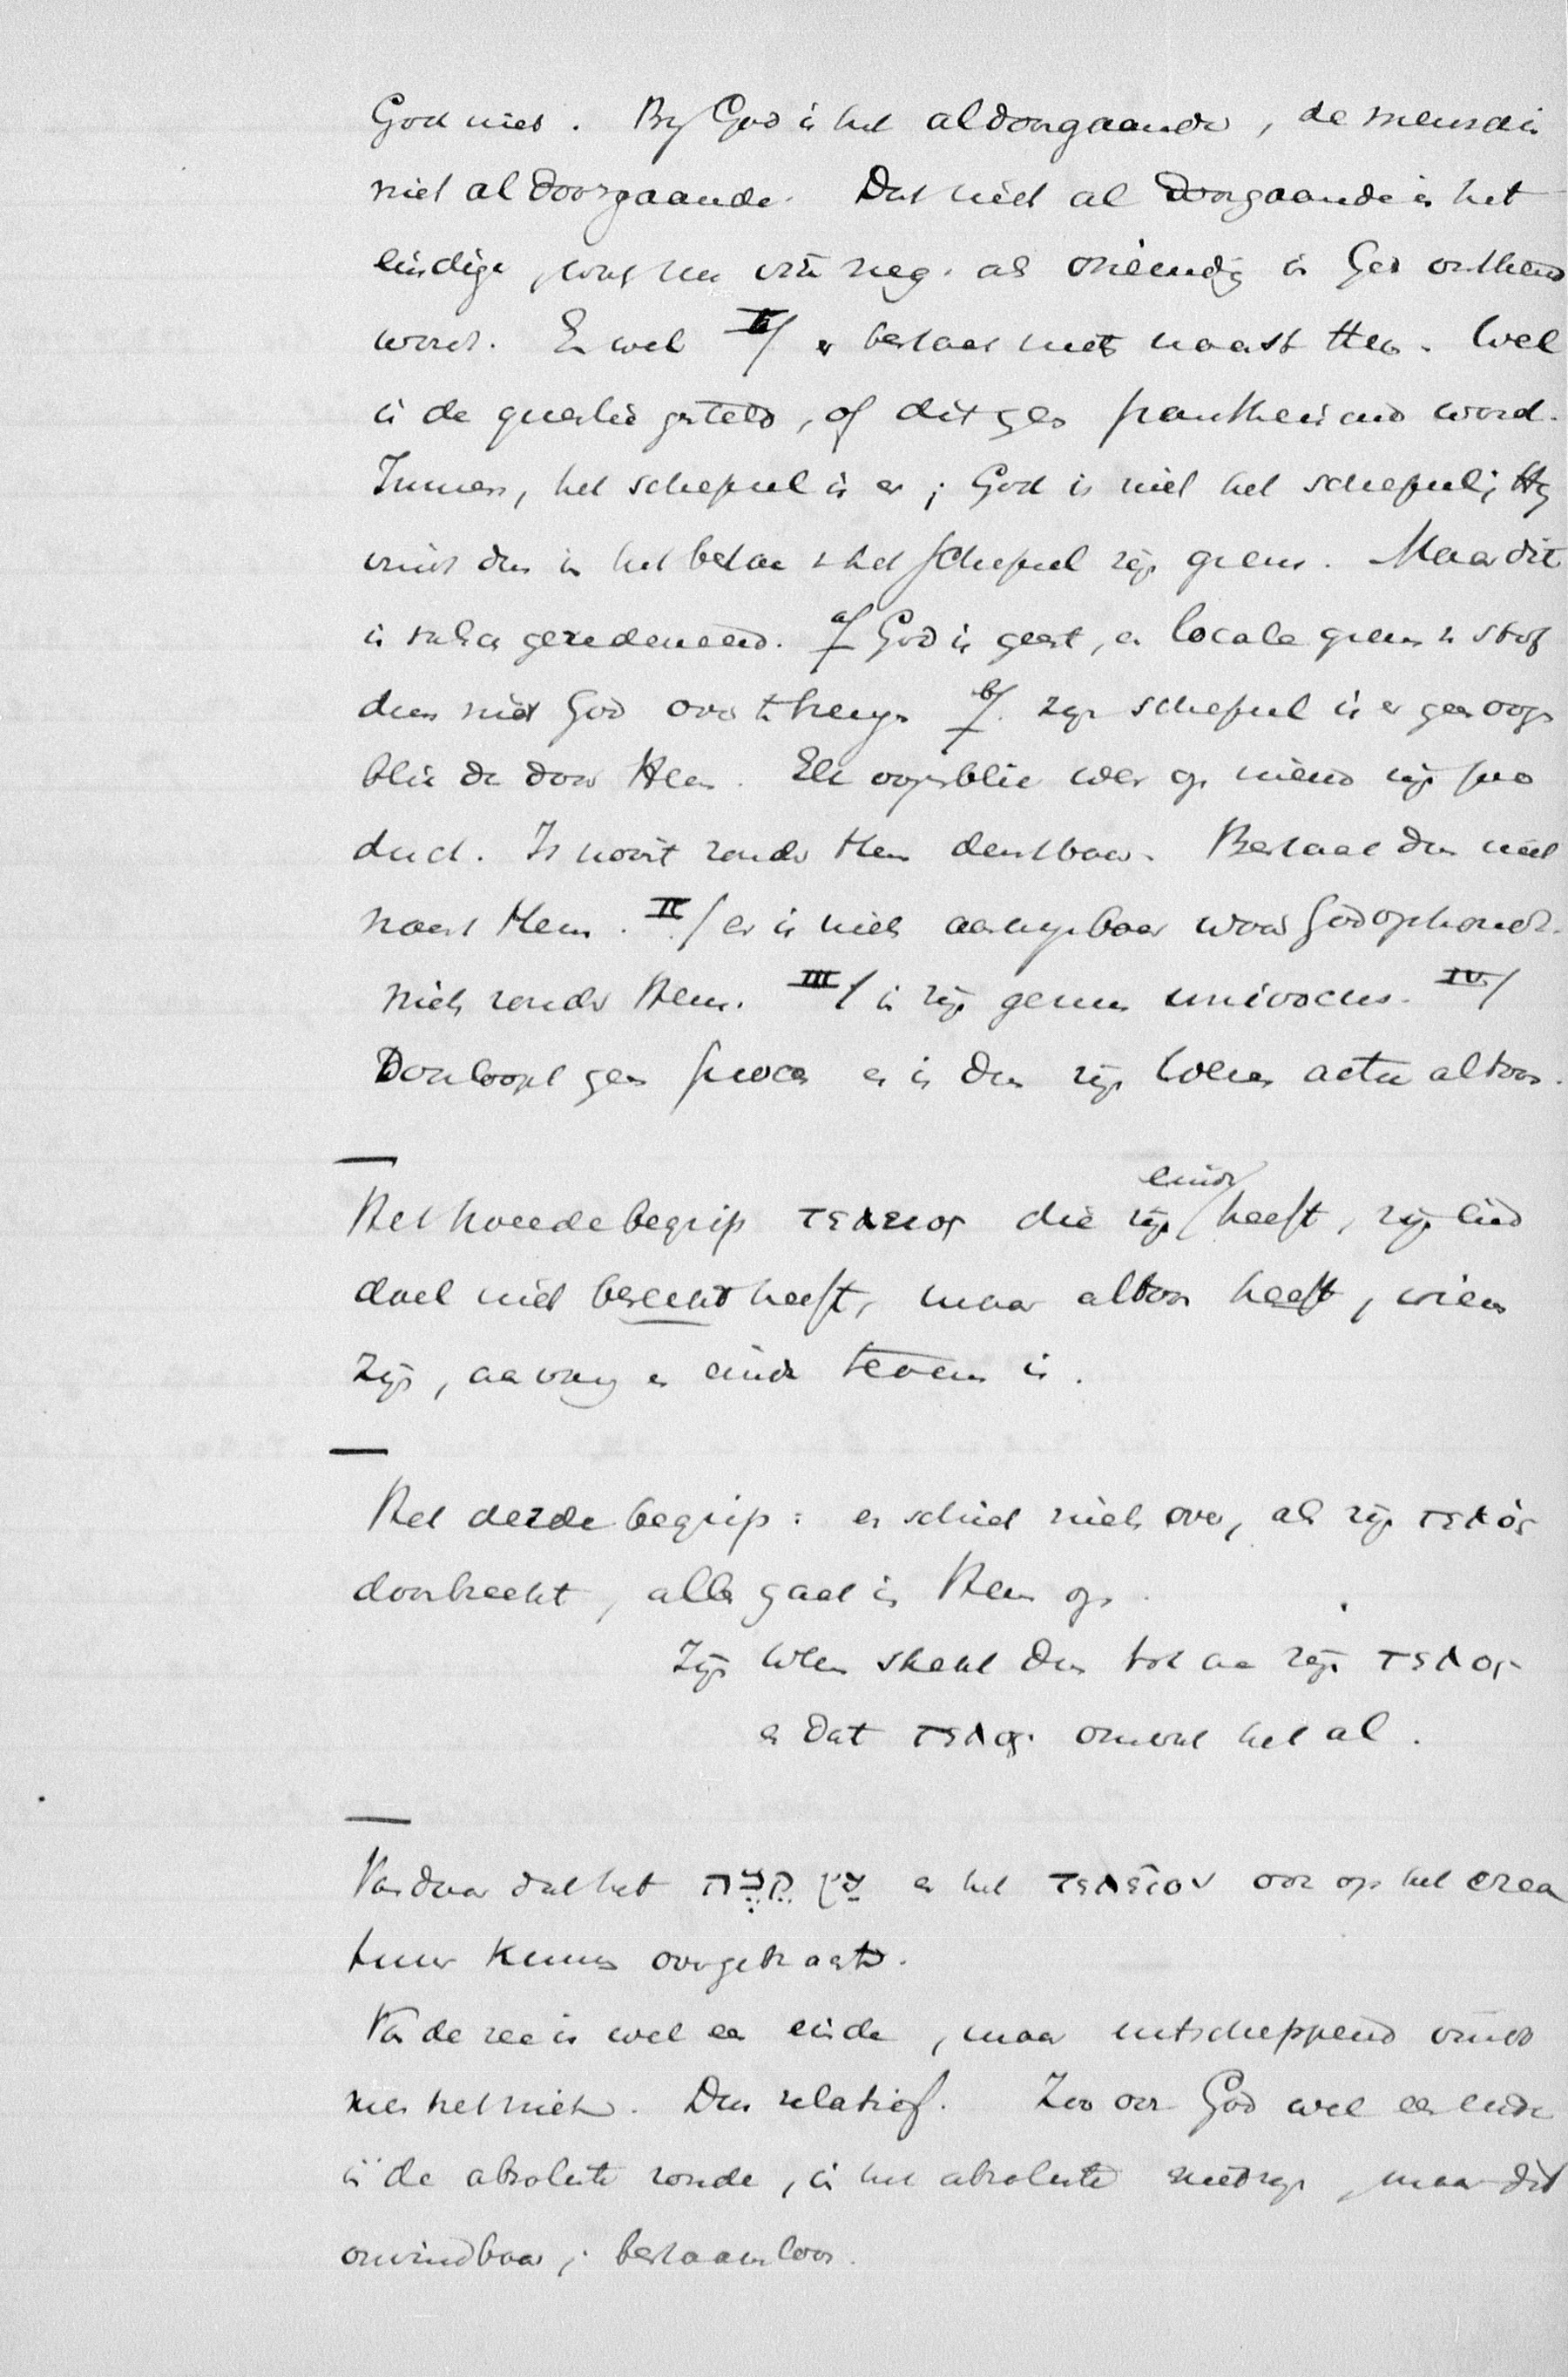 God niet. By God is het al doorgaande, de mensch is
niet al doorgaande. Dat niet al doorgaande is het
eindige, wat nu via neg. als oneindig in God ontkend
word. En wel I/ er bestaat niets naast Hem. Wel
is de questie gesteld, of dit geen pantheisme word.
Immers, het schepsel is er; God is niet het schepsel; Hy
vindt dus in het bestaan v. het schepsel zijn grens. Maar dit
is valsch geredeneerd. a/ God is geest, en locale grens en stof
dus niet God over te brengen b/. zijn schepsel is er geen oogen
blik dan door Hem. Elk oogenblik weer op nieuw zijn pro
duct. Is nooit zonder Hem denkbaar. Bestaat dus niet
naast Hem. II/ er is niets aanwijsbaar waar God ophoudt.
niets zonder Hem. III/ is zijn genus univocus. IV/
Doorloopt geen proces en is dus zijn Wezen actu altoos.
Het tweede begrip τελειος die zijn einde/ heeft, zijn eind
doel niet bereikt heeft, maar altoos heeft, wiens
zijn, aanvang en einde tevens is.
Het derde begrip: er schiet niets over, als zijn τελός
doorbreekt, alles gaat in Hem op.
Zijn Wezen strekt dus tot aan zijn τελος
en dat τελος omvat het al.
Van daar dat het אין קצה en het τελειον ook op het crea
tuur kunnen overgebracht.
Van de zee is wel een einde, maar uitscheppend vindt
men het niet. Dus relatief. Zoo ook God wel een einde
in de absolute zonde, in het absolute niet zijn, maar dit
onvindbaar, bestaanloos.